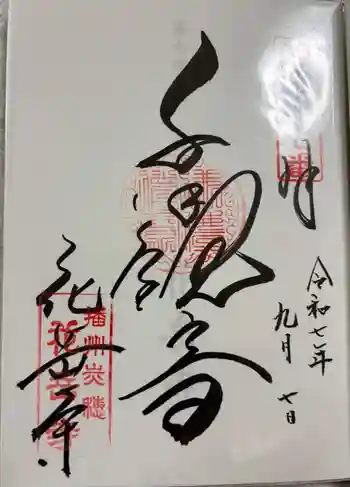 令和七年
九月七日
千手観音
花岳寺
播州赤穂
花岳寺